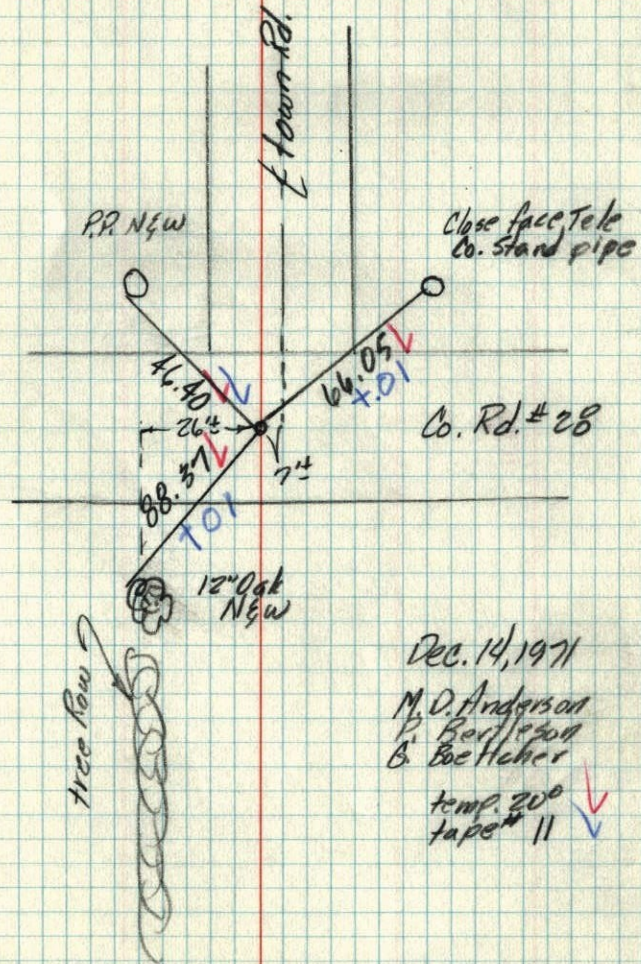 ℄ town Rd.
P.P. N&W
Close face Tele
Co. Stand pipe
46.40
66.05
+.01
26'±
Co. Rd. # 28
7'±
88.37
+01
12" Oak
N&W
tree Row
Dec. 14, 1971
M. D. Anderson
P. Bertleson
G. Boettcher
temp. 20°
tape # 11